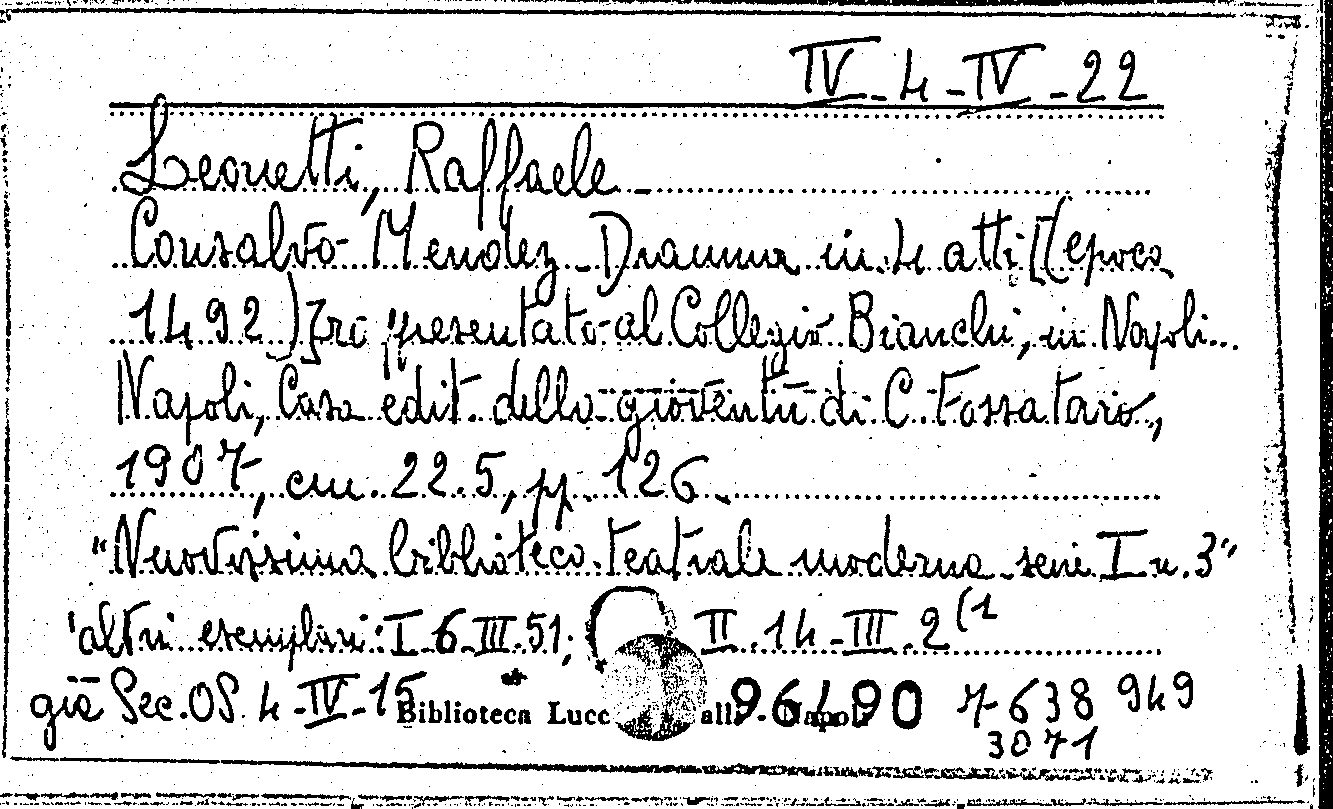 IV-4-IV-22
Leonetti, Raffaele
Consalvo Mendez. Dramma in 4 atti [(epoca
1492)] rappresentato al Collegio Bianchi, in Napoli.
Napoli, Casa edit. della gioventù di C. Fossataro,
1907, cm. 22.5, pp. 126
"Nuovissima biblioteca teatrale moderna serie I n. 3"
altri esemplari: I.6.III.51; II.14-III.2(1
già Sec. OS. 4-IV-15 Biblioteca Lucc 96490 7638 949
3071